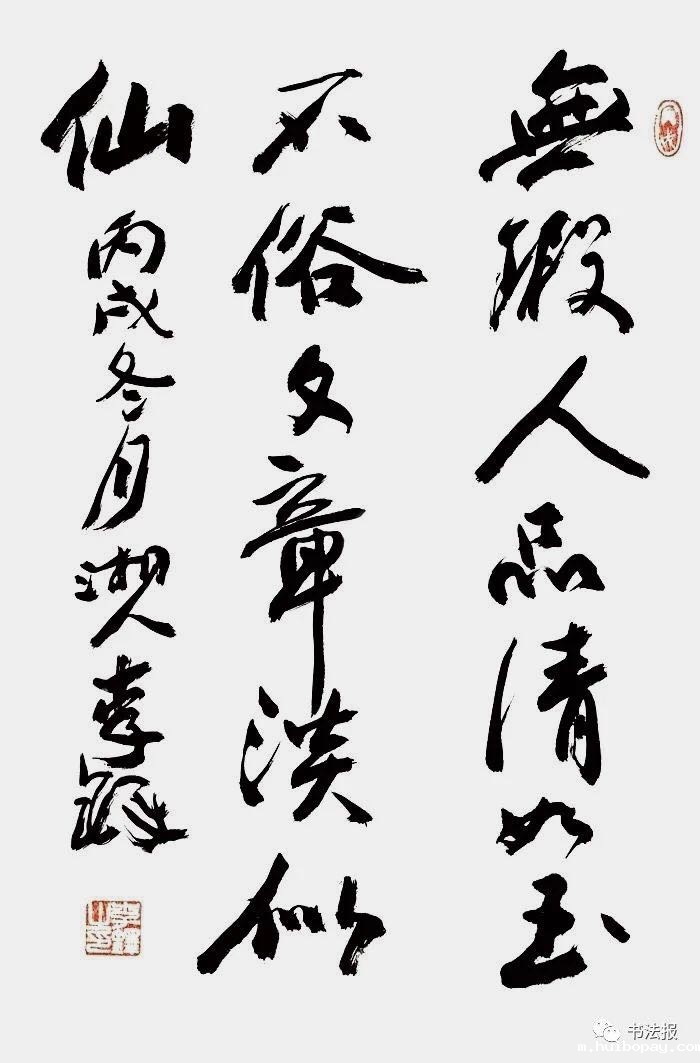 無瑕人品清如玉
不俗文章淡似
仙
丙戌冬月湘人李鐸
书法报
m.huibopay.com